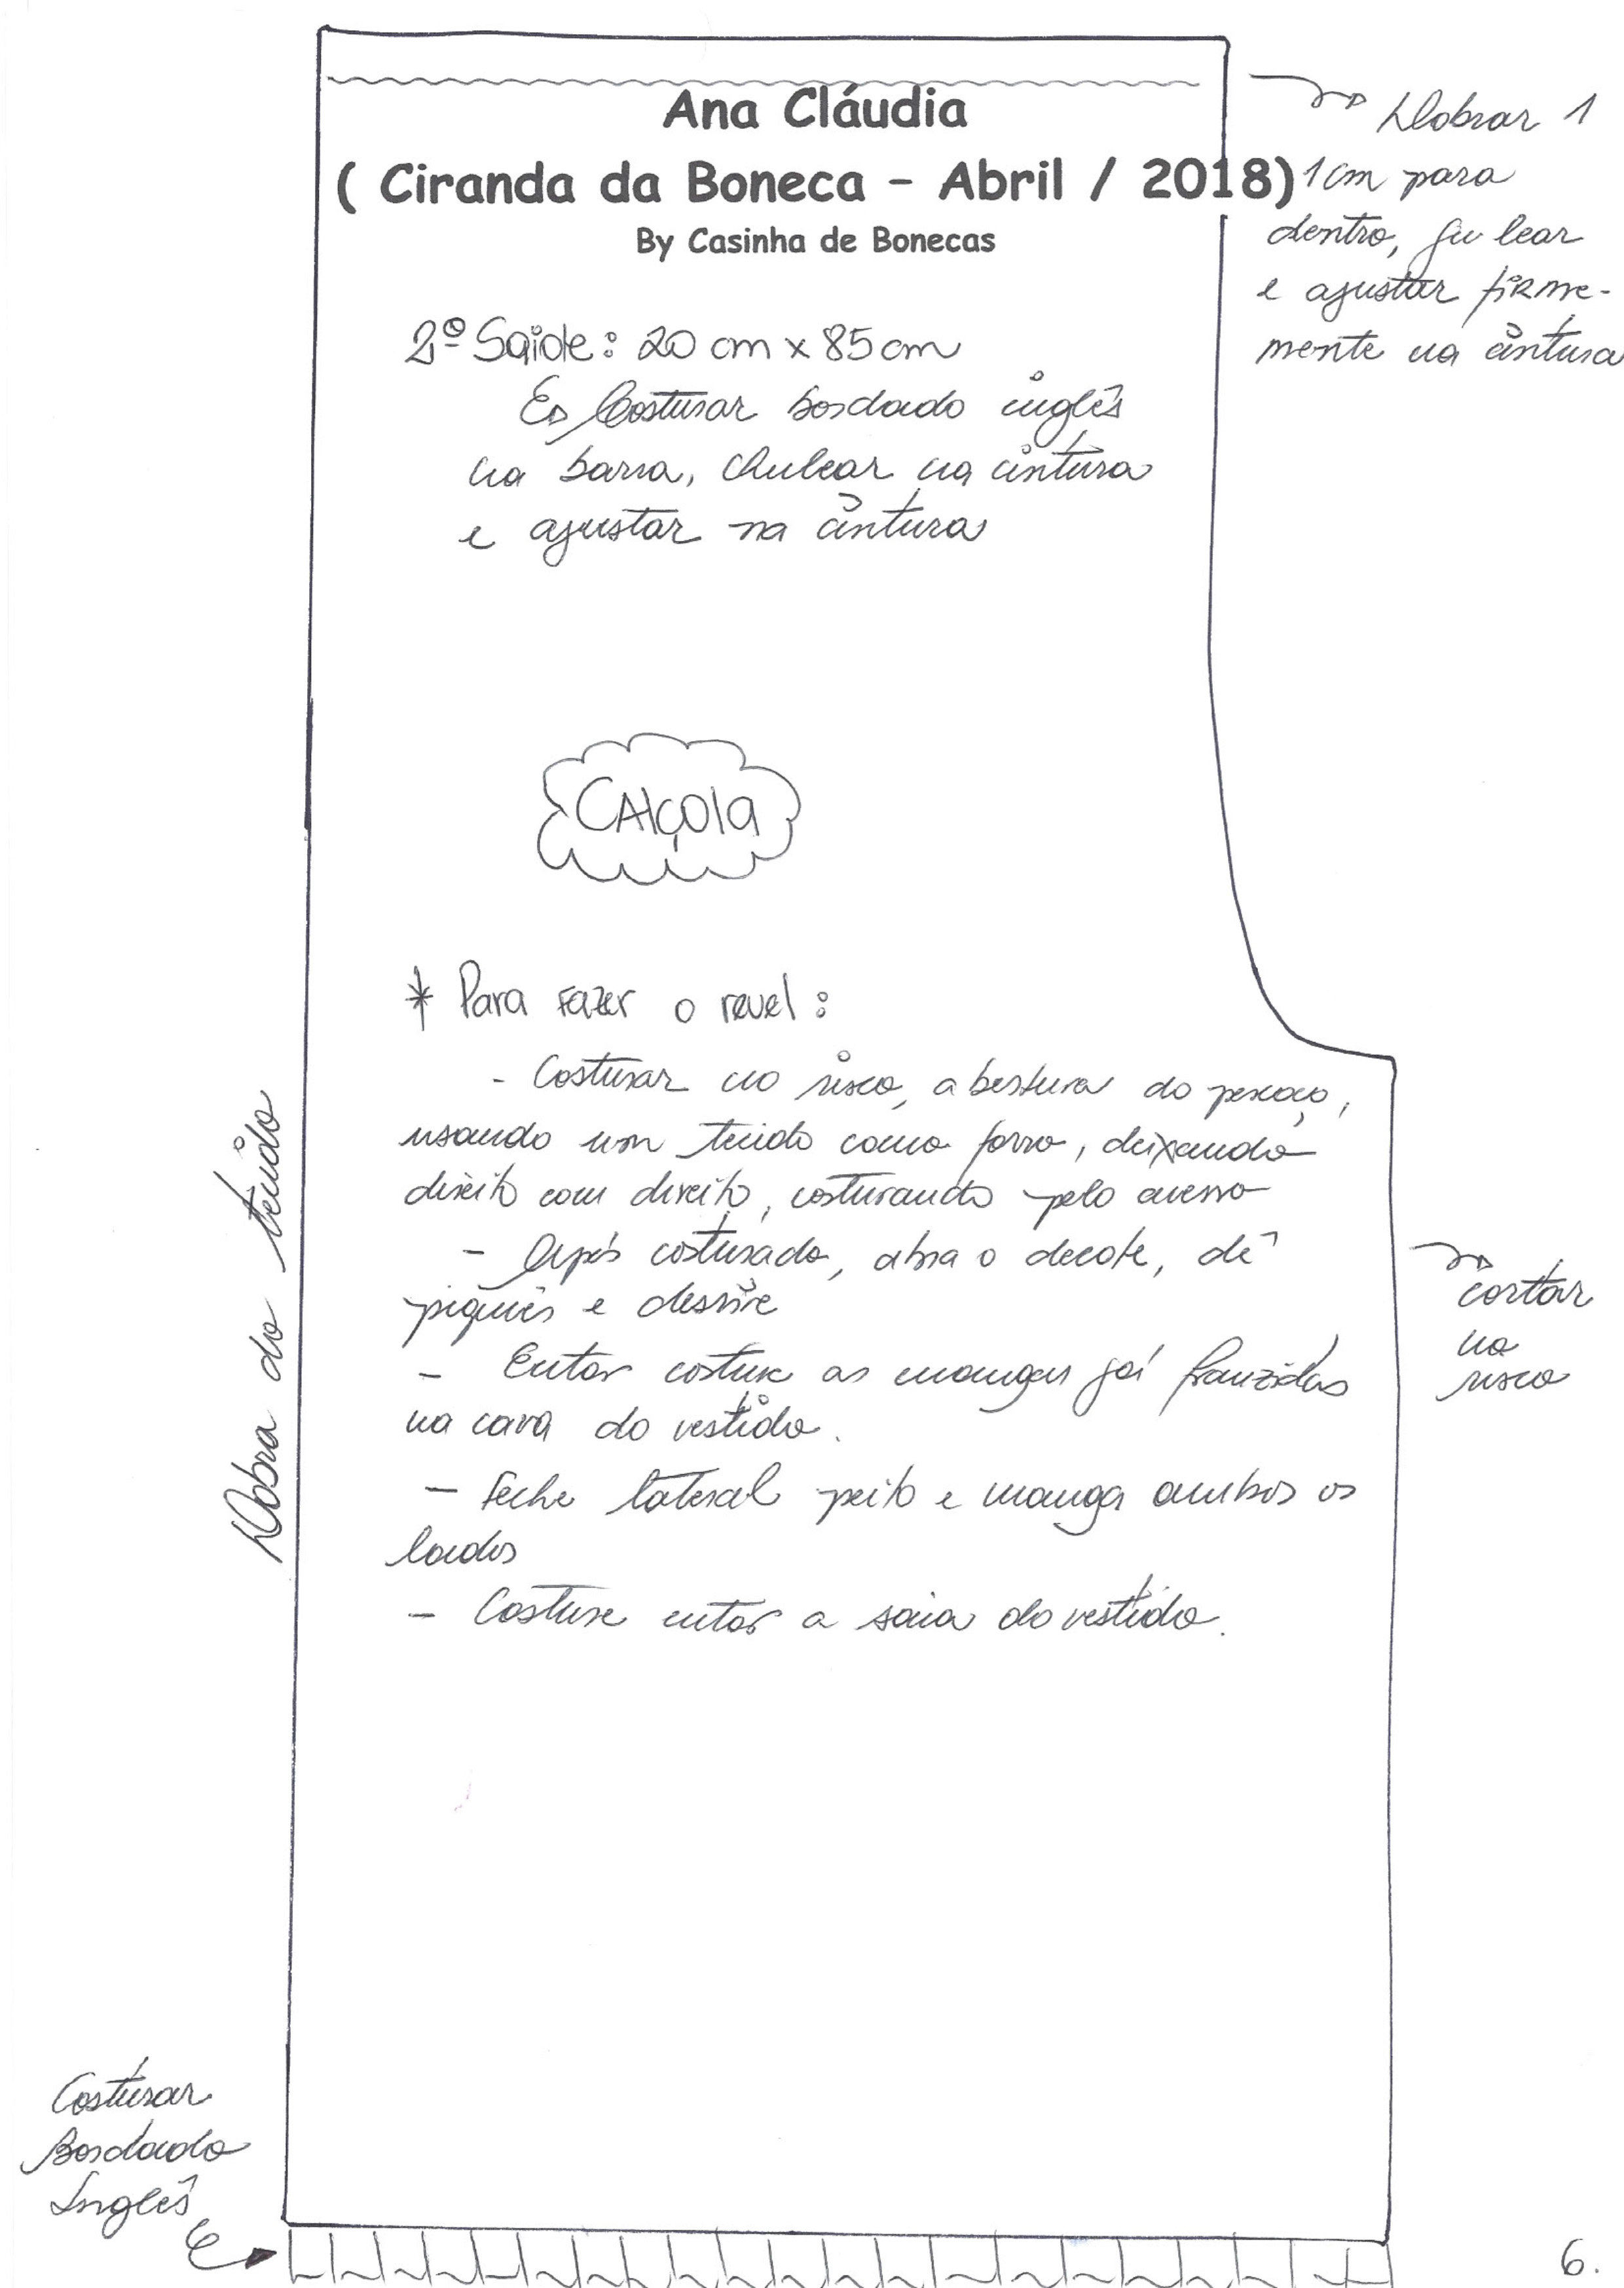 Ana Cláudia
( Ciranda da Boneca – Abril / 2018)
By Casinha de Bonecas
Dobrar 1
1cm para
dentro,
e ajustar firme-
mente na cintura
2º Saiote: 20 cm x 85 cm
Costurar bordado inglês
na barra, chulear na cintura
e ajustar na cintura
CAlçola
* Para Fazer o revel:
- Costurar no risco, abertura do pescoço,
usando um tecido como forro, deixando
direito com direito, costurando pelo avesso
- Após costurado, abra o decote, dê
piques e desvire
- Entao costure as mangas já franzidas
na cava do vestido.
- Feche lateral peito e manga ambos os
lados
- Costure entao a saia do vestido.
Dobra do tecido
cortar
no
risco
Costurar
Bordado
Inglês
6.